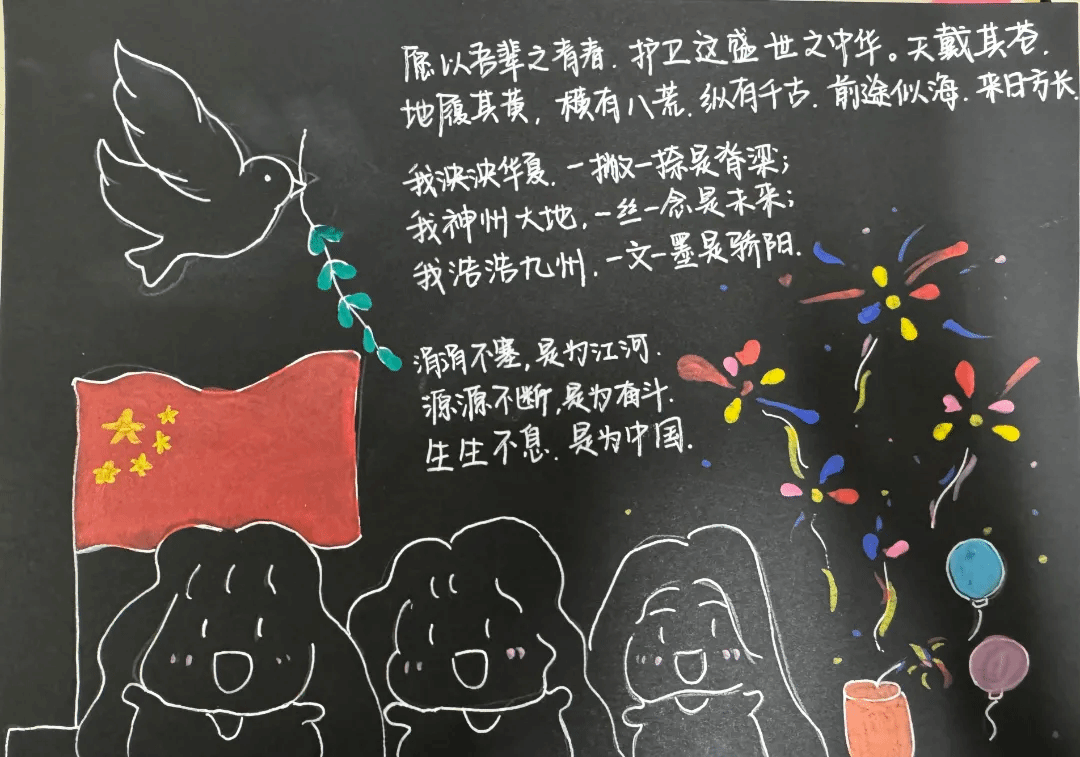 愿以吾辈之青春.护卫这盛世之中华。天戴其苍.
地履其黄,横有八荒.纵有千古.前途似海.来日方长.
我泱泱华夏.一撇一捺是脊梁;
我神州大地,一丝一念是未来;
我浩浩九州.一文一墨是骄阳.
涓涓不塞,是为江河.
源源不断,是为奋斗.
生生不息.是为中国.